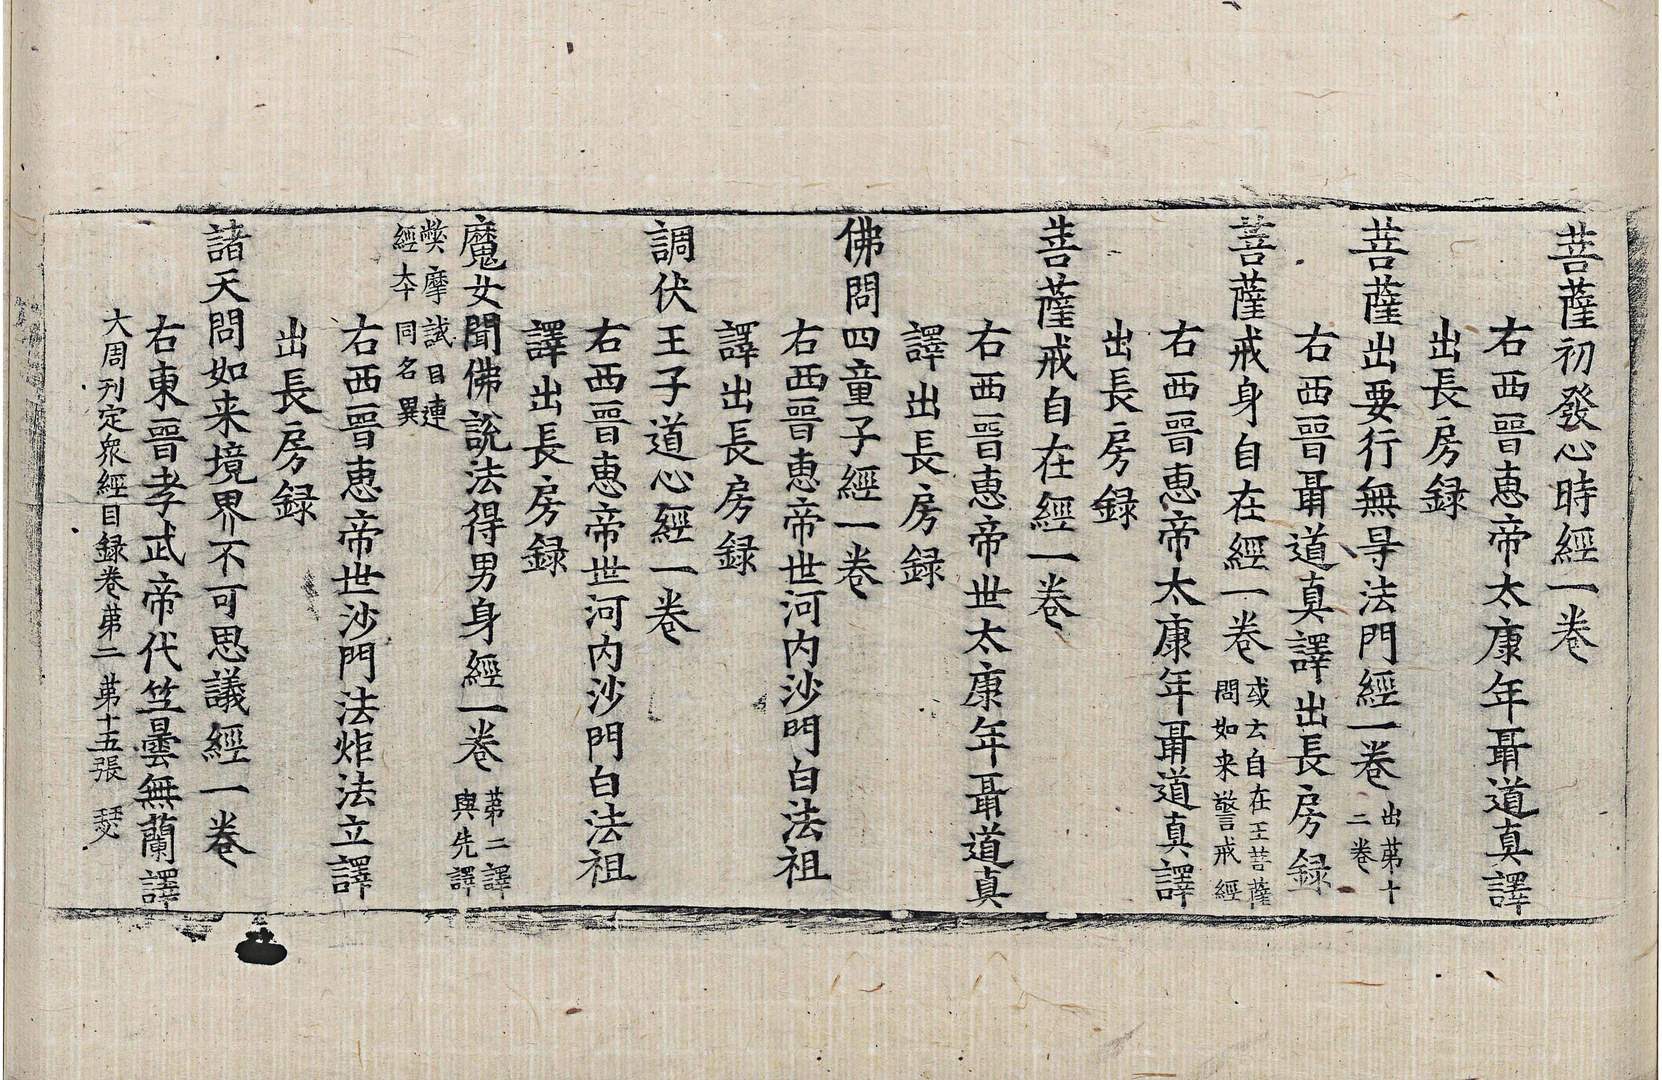 菩薩初發心時經一卷
右西晉惠帝太康年聶道真譯
出長房録
菩薩出要行無㝵法門經一卷 出苐十二卷
右西晉聶道真譯出長房録
菩薩戒身自在經一卷 或云自在王菩薩問如来警戒經
右西晉惠帝太康年聶道真譯
出長房録
菩薩戒自在經一卷
右西晉惠帝世太康年聶道真
譯出長房録
佛問四童子經一卷
右西晉惠帝世河内沙門白法祖
譯出長房録
調伏王子道心經一卷
右西晉惠帝世河内沙門白法祖
譯出長房録
魔女聞佛說法得男身經一卷 苐二譯與先譯
弊摩試目連經夲同名異
右西晉惠帝世沙門法炬法立譯
出長房録
諸天問如来境界不可思議經一卷
右東晉孝武帝代竺曇無蘭譯
大周刊定衆經目録卷苐二 苐十五張